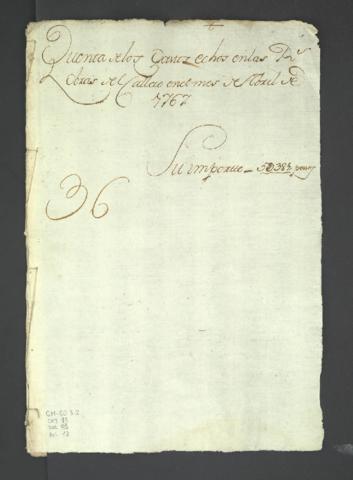 Quenta de los Gastos echos en las Rs
Obras del Callao en el mes de Abril de
1767
Su importe _ 5383 pesos
36